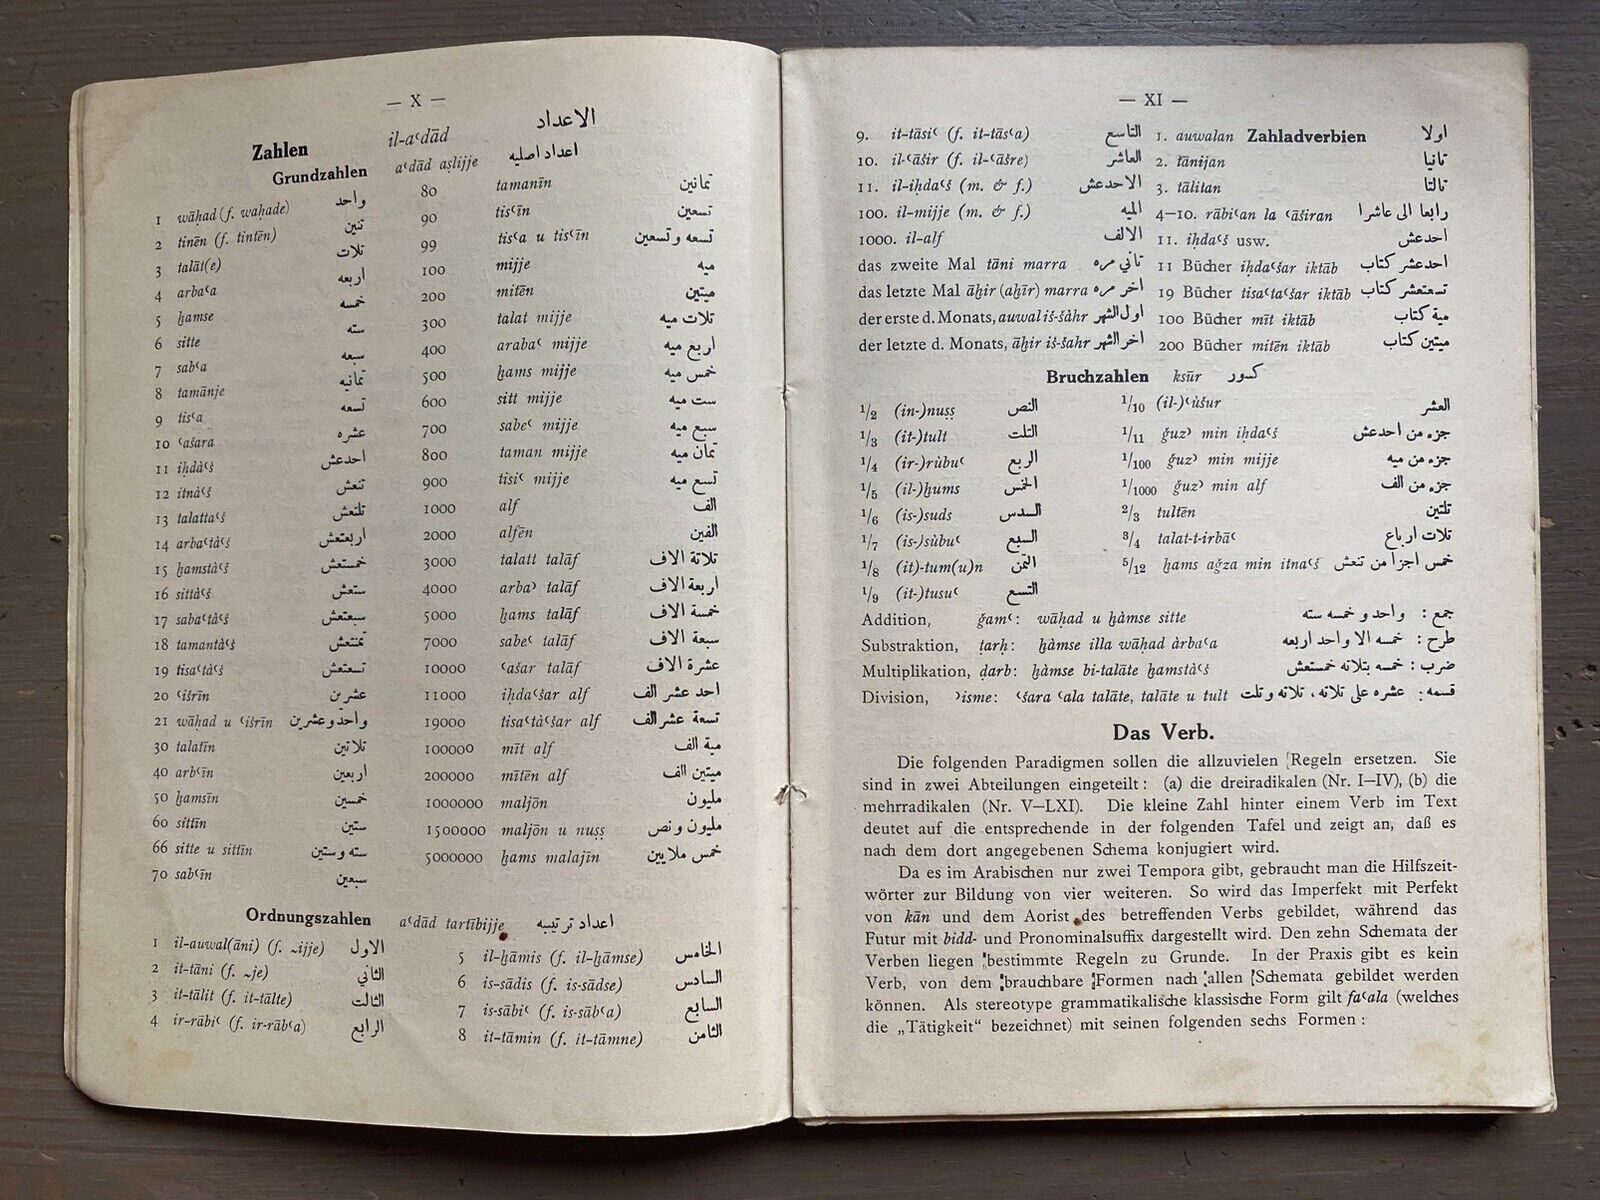 — X —
Zahlen il-aʿdād الاعداد
Grundzahlen aʿdād aṣlijje اعداد اصليه
1 wāḥad (f. waḥade) واحد
2 tinēn (f. tintēn) تنين
3 talāt(e) تلات
4 arbaʿa اربعه
5 ḫamse خمسه
6 sitte سته
7 sabʿa سبعه
8 tamānje تمانيه
9 tisʿa تسعه
10 ʿašara عشره
11 iḥdàʿš احدعش
12 itnàʿš تنعش
13 talattaʿš تلتعش
14 arbaʿtàʿš اربعتعش
15 ḫamstàʿš خمستعش
16 sittàʿš ستعش
17 sabaʿtàʿš سبعتعش
18 tamantàʿš تمنتعش
19 tisaʿtàʿš تسعتعش
20 ʿišrīn عشرين
21 wāḥad u ʿišrīn واحد وعشرين
30 talatīn تلاتين
40 arbʿīn اربعين
50 ḫamsīn خمسين
60 sittīn ستين
66 sitte u sittīn سته وستين
70 sabʿīn سبعين
80 tamanīn تمانين
90 tisʿīn تسعين
99 tisʿa u tisʿīn تسعه وتسعين
100 mijje ميه
200 mitēn ميتين
300 talat mijje تلات ميه
400 arabaʿ mijje اربع ميه
500 ḫams mijje خمس ميه
600 sitt mijje ست ميه
700 sabeʿ mijje سبع ميه
800 taman mijje تمان ميه
900 tisiʿ mijje تسع ميه
1000 alf الف
2000 alfēn الفين
3000 talatt talāf تلاتة الاف
4000 arbaʾ talāf اربعة الاف
5000 ḫams talāf خمسة الاف
7000 sabeʿ talāf سبعة الاف
10000 ʿašar talāf عشرة الاف
11000 iḥdaʿšar alf احد عشر الف
19000 tisaʿtàʿšar alf تسعة عشر الف
100000 mīt alf مية الف
200000 mīten alf ميتين الف
1000000 maljōn مليون
1500000 maljōn u nuṣṣ مليون ونص
5000000 ḫams malajīn خمس ملايين
Ordnungszahlen aʿdād tartībijje اعداد ترتيبيه
1 il-auwal(āni) (f. ~ijje) الاول
2 it-tāni (f. ~je) الثاني
3 it-tālit (f. it-tālte) الثالث
4 ir-rābiʿ (f. ir-rābʿa) الرابع
5 il-ḫāmis (f. il-ḫāmse) الخامس
6 is-sādis (f. is-sādse) السادس
7 is-sābiʿ (f. is-sābʿa) السابع
8 it-tāmin (f. it-tāmne) الثامن
— XI —
9. it-tāsiʿ (f. it-tāsʿa) التاسع
10. il-ʿāšir (f. il-ʿāšre) العاشر
11. il-iḥdaʿš (m. & f.) الاحدعش
100. il-mijje (m. & f.) الميه
1000. il-alf الالف
das zweite Mal tāni marra تاني مره
das letzte Mal āḫir (aḫīr) marra اخر مره
der erste d. Monats, auwal iš-šàhr اول الشهر
der letzte d. Monats, āḫir iš-šahr اخر الشهر
1. auwalan Zahladverbien اولا
2. tānijan تانيا
3. tālitan تالتا
4–10. rābiʿan la ʿāširan رابعا الى عاشرا
11. iḥdaʿš usw. احدعش
11 Bücher iḥdaʿšar iktāb احدعشر كتاب
19 Bücher tisaʿtaʿšar iktāb تسعتعشر كتاب
100 Bücher mīt iktāb مية كتاب
200 Bücher mitēn iktāb ميتين كتاب
Bruchzahlen ksūr كسور
1/2 (in-)nuṣṣ النص
1/3 (it-)tult التلت
1/4 (ir-)rùbuʿ الربع
1/5 (il-)ḫums الخمس
1/6 (is-)suds السدس
1/7 (is-)sùbuʿ السبع
1/8 (it)-tum(u)n التمن
1/9 (it-)tusuʿ التسع
1/10 (il-)ʿùšur العشر
1/11 ǧuzʾ min iḥdaʿš جزء من احدعش
1/100 ǧuzʾ min mijje جزء من ميه
1/1000 ǧuzʾ min alf جزء من الف
2/3 tultēn تلتين
3/4 talat-t-irbāʿ تلات ارباع
5/12 ḫams aǧza min itnaʿš خمس اجزا من تنعش
Addition, ǧamʿ: wāḥad u ḫàmse sitte جمع : واحد و خمسه سته
Substraktion, ṭarḥ: ḫàmse illa wāḥad àrbaʿa طرح : خمسه الا واحد اربعه
Multiplikation, ḍarb: ḫàmse bi-talāte ḫamstàʿš ضرب : خمسه بتلاته خمستعش
Division, ʾisme: ʿšara ʿala talāte, talāte u tult قسمه: عشره على تلاته، تلاته وتلت
Das Verb.
Die folgenden Paradigmen sollen die allzuvielen Regeln ersetzen. Sie
sind in zwei Abteilungen eingeteilt: (a) die dreiradikalen (Nr. I—IV), (b) die
mehrradikalen (Nr. V—LXI). Die kleine Zahl hinter einem Verb im Text
deutet auf die entsprechende in der folgenden Tafel und zeigt an, daß es
nach dem dort angegebenen Schema konjugiert wird.
Da es im Arabischen nur zwei Tempora gibt, gebraucht man die Hilfszeit-
wörter zur Bildung von vier weiteren. So wird das Imperfekt mit Perfekt
von kān und dem Aorist des betreffenden Verbs gebildet, während das
Futur mit bidd- und Pronominalsuffix dargestellt wird. Den zehn Schemata der
Verben liegen bestimmte Regeln zu Grunde. In der Praxis gibt es kein
Verb, von dem brauchbare Formen nach allen Schemata gebildet werden
können. Als stereotype grammatikalische klassische Form gilt faʿala (welches
die „Tätigkeit“ bezeichnet) mit seinen folgenden sechs Formen: